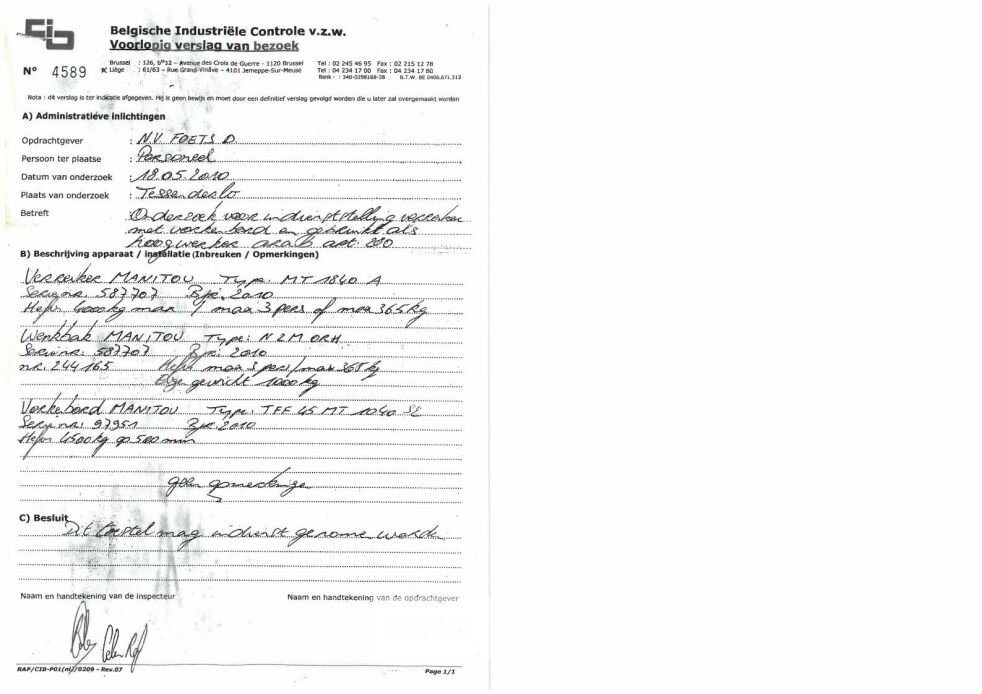 cib
Belgische Industriële Controle v.z.w.
Voorlopig verslag van bezoek
N° 4589
Brussel : 126, bte12 – Avenue des Croix de Guerre - 1120 Brussel Tel : 02 245 46 95 Fax : 02 215 12 78
Liège : 61/63 – Rue Grand-Vinâve – 4101 Jemeppe-Sur-Meuse Tel : 04 234 17 00 Fax : 04 234 17 80
Bank - : 340-0298168-28 B.T.W. BE 0406.671.313
Nota : dit verslag is ter indicatie afgegeven. Hij is geen bewijs en moet door een definitief verslag gevolgd worden die u later zal overgemaakt worden
A) Administratieve inlichtingen
Opdrachtgever : N.V. FOETS D
Persoon ter plaatse : Personeel
Datum van onderzoek : 18.05.2010
Plaats van onderzoek : Tessenderlo
Betreft Onderzoek voor indienststelling verreiker
met vorkenbord en gebruikt als
hoogwerker arab art: 280
B) Beschrijving apparaat / installatie (Inbreuken / Opmerkingen)
Verreiker MANITOU Type: MT 1840 A
Serienr. 587707 Bjr. 2010
Hefv 4000kg max / max 3 pers of max 365kg
Werkbak MANITOU Type: N2M ORH
Serienr: 587707 Bjr: 2010
nr. 244165 Hefv max 3 pers/max 365 kg
Eigen gewicht 1000kg
Vorkebord MANITOU Type: TFF 45 MT 1040 SE
Serienr. 97951 Bjr 2010
Hefv 4500kg op 500 mm
geen opmerkingen
C) Besluit
Dit toestel mag in dienst genomen worden
Naam en handtekening van de inspecteur Naam en handtekening van de opdrachtgever
RAP/CIB-P01(nl)/0209 - Rev.07 Page 1/1